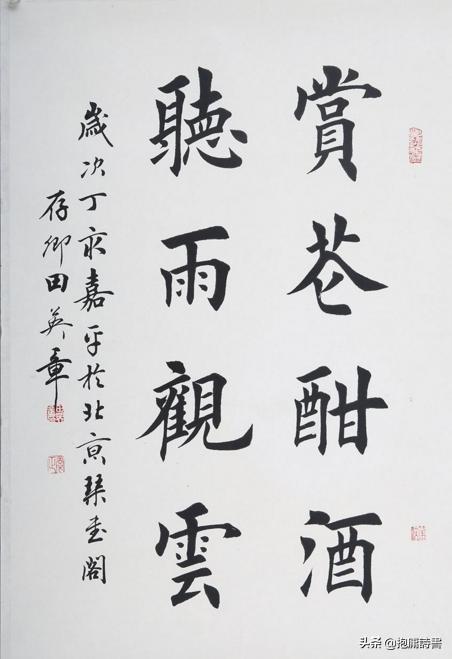 賞花酣酒
聽雨觀雲
歲次丁亥嘉平於北京琴书閣
存卿田英章
头条 @抱庸詩書